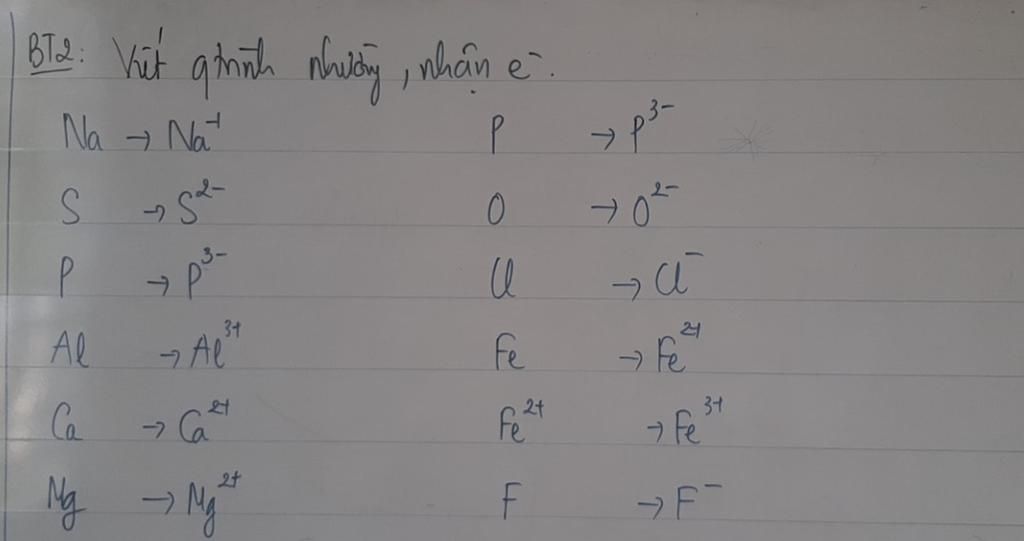 BT2: Viết qtrình nhường, nhận e⁻.
Na → Na⁺ P → P³⁻
S → S²⁻ O → O²⁻
P → P³⁻ Cl → Cl⁻
Al → Al³⁺ Fe → Fe²⁺
Ca → Ca²⁺ Fe²⁺ → Fe³⁺
Mg → Mg²⁺ F → F⁻